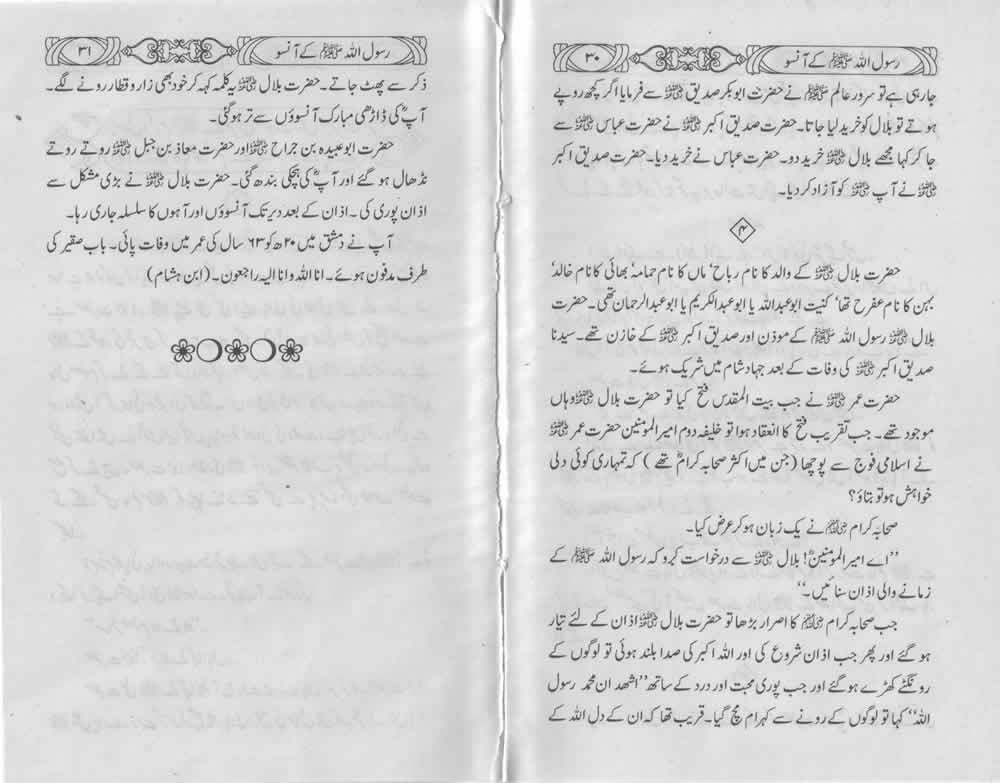 رسول اللہ ﷺ کے آنسو
۳۰
جارہی ہے تو سرور عالم ﷺ نے حضرت ابوبکر صدیق ؓ سے فرمایا اگر کچھ روپے
ہوتے تو بلال کو خرید لیا جاتا۔ حضرت صدیق اکبر ؓ نے حضرت عباس ؓ سے
جا کر کہا مجھے بلال ؓ خرید دو۔ حضرت عباس نے خرید دیا۔ حضرت صدیق اکبر
ؓ نے آپ ؓ کو آزاد کر دیا۔
۴
حضرت بلال ؓ کے والد کا نام رباح' ماں کا نام حمامہ' بھائی کا نام خالد'
بہن کا نام عفرح تھا' کنیت ابو عبداللہ یا ابو عبدالکریم یا ابو عبدالرحمان تھی۔ حضرت
بلال ؓ رسول اللہ ﷺ کے موذن اور صدیق اکبر ؓ کے خازن تھے۔ سیدنا
صدیق اکبر ؓ کی وفات کے بعد جہاد شام میں شریک ہوئے۔
حضرت عمر ؓ نے جب بیت المقدس فتح کیا تو حضرت بلال ؓ وہاں
موجود تھے۔ جب تقریب فتح کا انعقاد ہوا تو خلیفہ دوم امیر المومنین حضرت عمر ؓ
نے اسلامی فوج سے پوچھا (جن میں اکثر صحابہ کرامؓ تھے) کہ تمہاری کوئی دلی
خواہش ہو تو بتاؤ؟
صحابہ کرام ؓ نے یک زبان ہو کر عرض کیا۔
''اے امیر المومنینؓ! بلال ؓ سے درخواست کرو کہ رسول اللہ ﷺ کے
زمانے والی اذان سنائیں۔''
جب صحابہ کرام ؓ کا اصرار بڑھا تو حضرت بلال ؓ اذان کے لئے تیار
ہو گئے اور پھر جب اذان شروع کی اور اللہ اکبر کی صدا بلند ہوئی تو لوگوں کے
رونگٹے کھڑے ہو گئے اور جب پوری محبت اور درد کے ساتھ ''اشھد ان محمد رسول
اللہ'' کہا تو لوگوں کے رونے سے کہرام مچ گیا۔ قریب تھا کہ ان کے دل اللہ کے
رسول اللہ ﷺ کے آنسو
۳۱
ذکر سے پھٹ جاتے۔ حضرت بلال ؓ یہ کلمہ کہہ کر خود بھی زار و قطار رونے لگے۔
آپؓ کی ڈاڑھی مبارک آنسوؤں سے تر ہو گئی۔
حضرت ابو عبیدہ بن جراح ؓ اور حضرت معاذ بن جبل ؓ روتے روتے
نڈھال ہو گئے اور آپؓ کی ہچکی بندھ گئی۔ حضرت بلال ؓ نے بڑی مشکل سے
اذان پوری کی۔ اذان کے بعد دیر تک آنسوؤں اور آہوں کا سلسلہ جاری رہا۔
آپ نے دمشق میں ۲۰ھ کو ۶۳ سال کی عمر میں وفات پائی۔ باب صغیر کی
طرف مدفون ہوئے۔ انا اللہ وانا الیہ راجعون۔ (ابن ہشام)